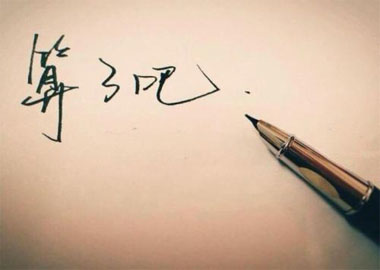 算了吧.